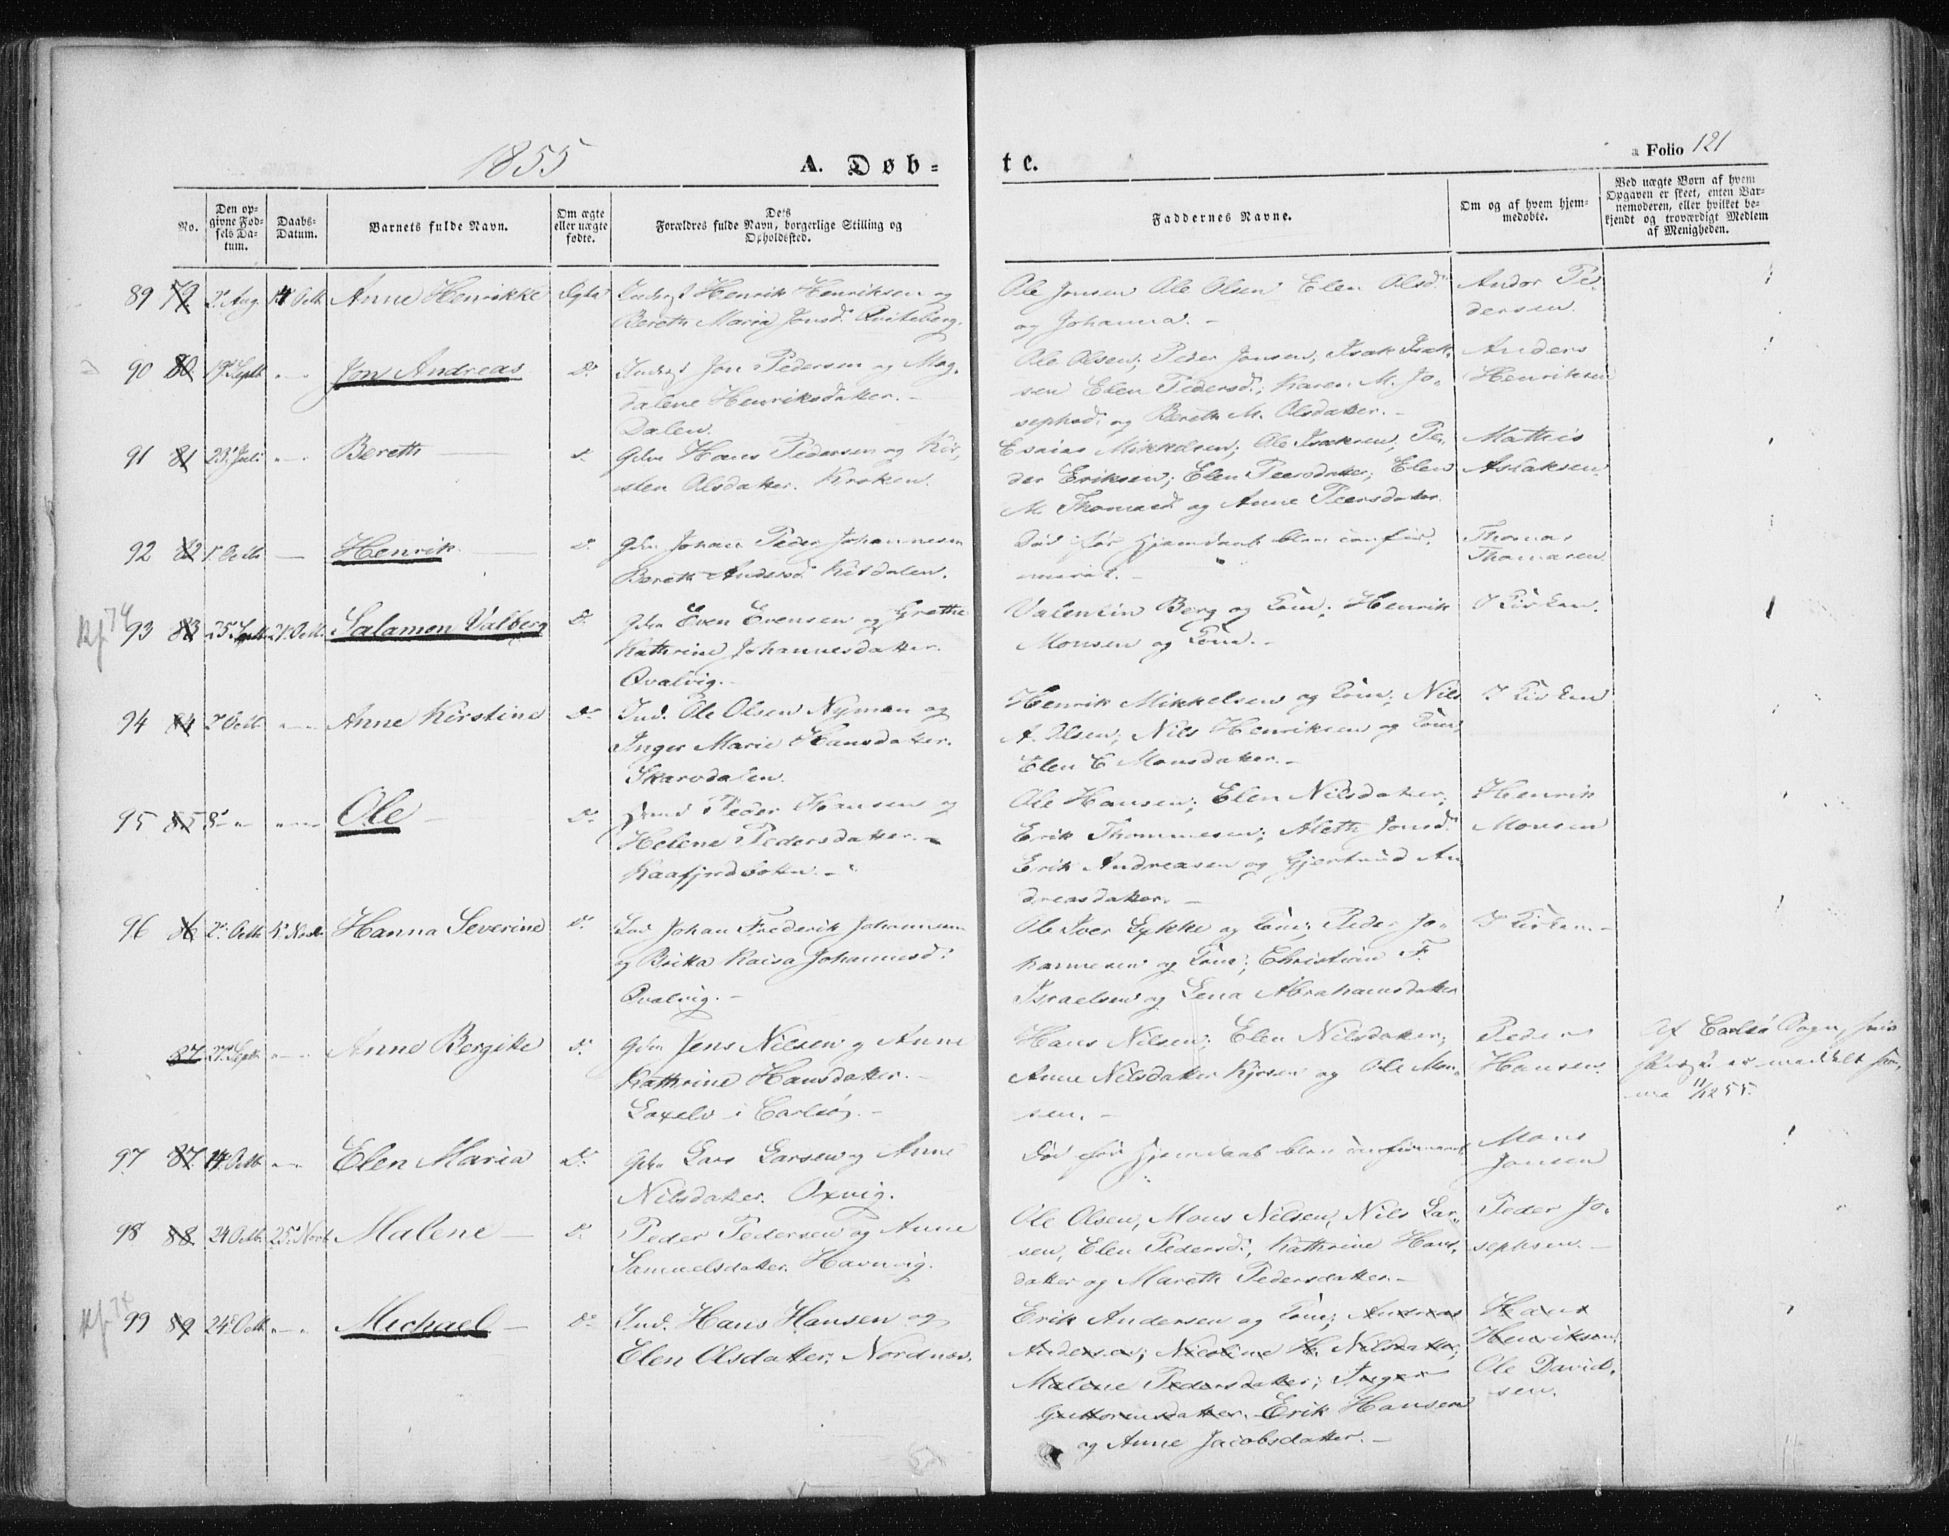 1855
A. Døb-
te.
a Folio 121
No.
Den op-
givne Fød-
sels Da-
tum.
Daabs-
Datum.
Barnets fulde Navn.
Om ægte
eller uægte
fødte.
De's
Forældres fulde Navn, borgerlige Stilling og
Opholdssted.
Faddernes Navne.
Om og af hvem hjem-
medøbte.
Ved uægte Børn af hvem
Opgaven er skeet, enten Bar-
nemoderen, eller hvilket be-
kjendt og troværdigt Medlem
af Menigheden.
89 79 2 Aug. 14 Octb Anne Henrikke Egte Henrik Henriksen og
Bereth Maria Jonsd. Qviteberg.
Ole Jonsen Ole Olsen Elen Olsd.
og Johanna. -
Andor Pe-
dersen.
90 80 19 Septb Jon Andreas Do Jon Pedersen og Mag-
dalene Henriksdatter. -
Dalen.
Ole Olsen; Peder Jonsen; Isak Isak-
sen Elen Pedersd.; Karen M. Jo-
sephsd. og Bereth M. Olsdatter. -
Anders
Henriksen
91 81 23 Juli Bereth Hans Pedersen og Kir-
sten Olsdatter. Kroken.
Esaias Mikkelsen; Ole Isaksen, Pe-
der Eriksen; Elen Peersdatter; Elen
M. Thomasd. og Anne Peersdatter.
Mathis
Aslaksen.
92 82 1 Octb Henrik Johan Peder Johannesen
Bereth Andersd. Kitdalen.
Død før Hjemdaab blev confir-
meret. -
Thomas
Thomasen
93 83 25 Septb 21 Octb Salamon Valberg Do Even Evensen og Grethe
Kathrine Johannesdatter.
Qvalvig. -
Valentin Berg og Kone; Henrik
Monsen og Kone. -
I Kirken.
94 84 2 Octb Anne Kirstine Do Ind. Ole Olsen Nyman og
Inger Marie Hansdatter.
Skarvdalen.
Henrik Mikkelsen og Kone; Nils
A. Olsen; Nils Henriksen og Kone,
Elen C Monsdatter. -
I Kirken
95 85 8 Ole Do Peder Hansen og
Helene Pedersdatter. -
Kaafjordbotn. -
Ole Hansen; Elen Nilsdatter;
Erik Thommesen; Aleth Jonsd.
Erik Andreasen og Gjertrud An
dreasdatter. -
Henrik
Monsen
96 86 2 Octb 4 Novb Hanna Severine Do Johan Frederik Johannesen
og Britta Kaisa Johannesd.
Qvalvig. -
Ole Iver Lykke og Kone; Peder Jo-
hannesen og Kone; Christian F.
Israelsen og Lena Abrahamsdatter
I Kirken. -
87 27 Septb Anne Bergitte Do Jens Nilsen og Anne
Kathrine Hansdatter. -
Laxelv i Carlsø. -
Hans Nilsen; Elen Nilsdatter;
Anne Nilsdatter Kjosen og Ole Mon-
sen. -
Peder
Hansen.
Af Carlsø Sogn,
er meddelt
11/12 55.
97 87 14 Octb Elen Maria Do Lars Larsen og Anne
Nilsdatter. Oxvig.
Død før Hjemdaab blev confirmeret.
Mons
Jonsen
98 88 24 Octb 25 Novb Malene Do Peder Pedersen og Anne
Samuelsdatter. Havnvig.
Ole Olsen, Mons Nilsen, Nils Lar-
sen, Elen Pedersd., Kathrine Hans-
datter og Mareth Pedersdatter. -
Peder Jo-
sephsen. -
99 89 24 Octb Michael Do Ind. Hans Hansen og
Elen Olsdatter. Nordnæs.
Erik Andersen og Kone; Andreas
Andersen; Nicoline H. Nilsdatter;
Malene Pedersdatter; Inger
Guttormsdatter. Erik Hansen
og Anne Jacobsdatter. -
Hans
Henriksen
Ole David-
sen.